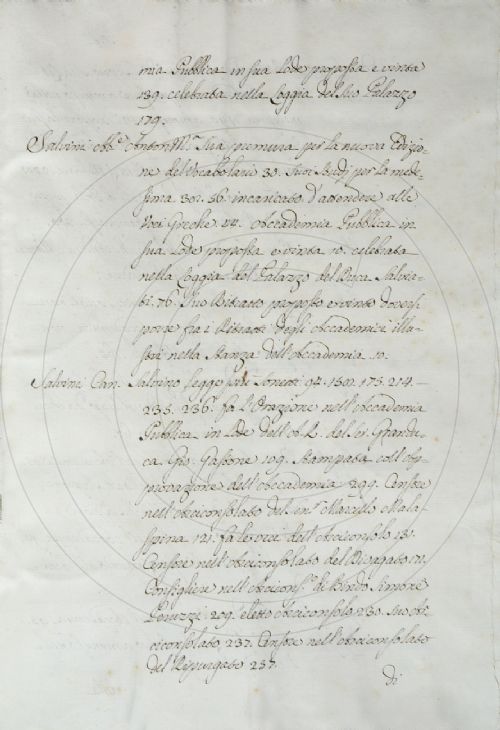 mia Pubblica in sua Lode proposta e vinta
139. celebrata nella Loggia del suo Palazzo
179.
Salvini Abb.e Anton M.a Sua premura per la nuova Edizio-
ne del Vocabolario 30. Suoi Studj per la mede-
sima 30. 36. incaricato d'attendere alle
Voci Greche 44. Accademia Pubblica in
sua Lode proposta e vinta 10. celebrata
nella Loggia del Palazzo del Duca Salvia-
ti. 76. Suo Ritratto proposto e vinto doversi
porre fra i Ritratti degli Accademici illu-
stri nella Stanza dell'Accademia 10.
Salvini Can. Salvino legge suoi Sonetti 94. 150. 175. 214.
235. 236. fa l'Orazione nell'Accademia
Pubblica in Lode dell'A. R. del Ser. Grandu-
ca Gio. Gastone 109. Stampata coll'Ap-
provazione dell'Accademia 299. Censore
nell'Arciconsolato del Marcello Mala-
spina 121. fa le veci dell'Arciconsolo 131.
Censore nell'Arciconsolato del Ripurgato 171.
Consigliere nell'Arcicons.o di Bindo Simone
Peruzzi 209. eletto Arciconsolo 230. Suo Ar-
ciconsolato 237. Censore nell'Arciconsolato
del Ripurgato 257.
di